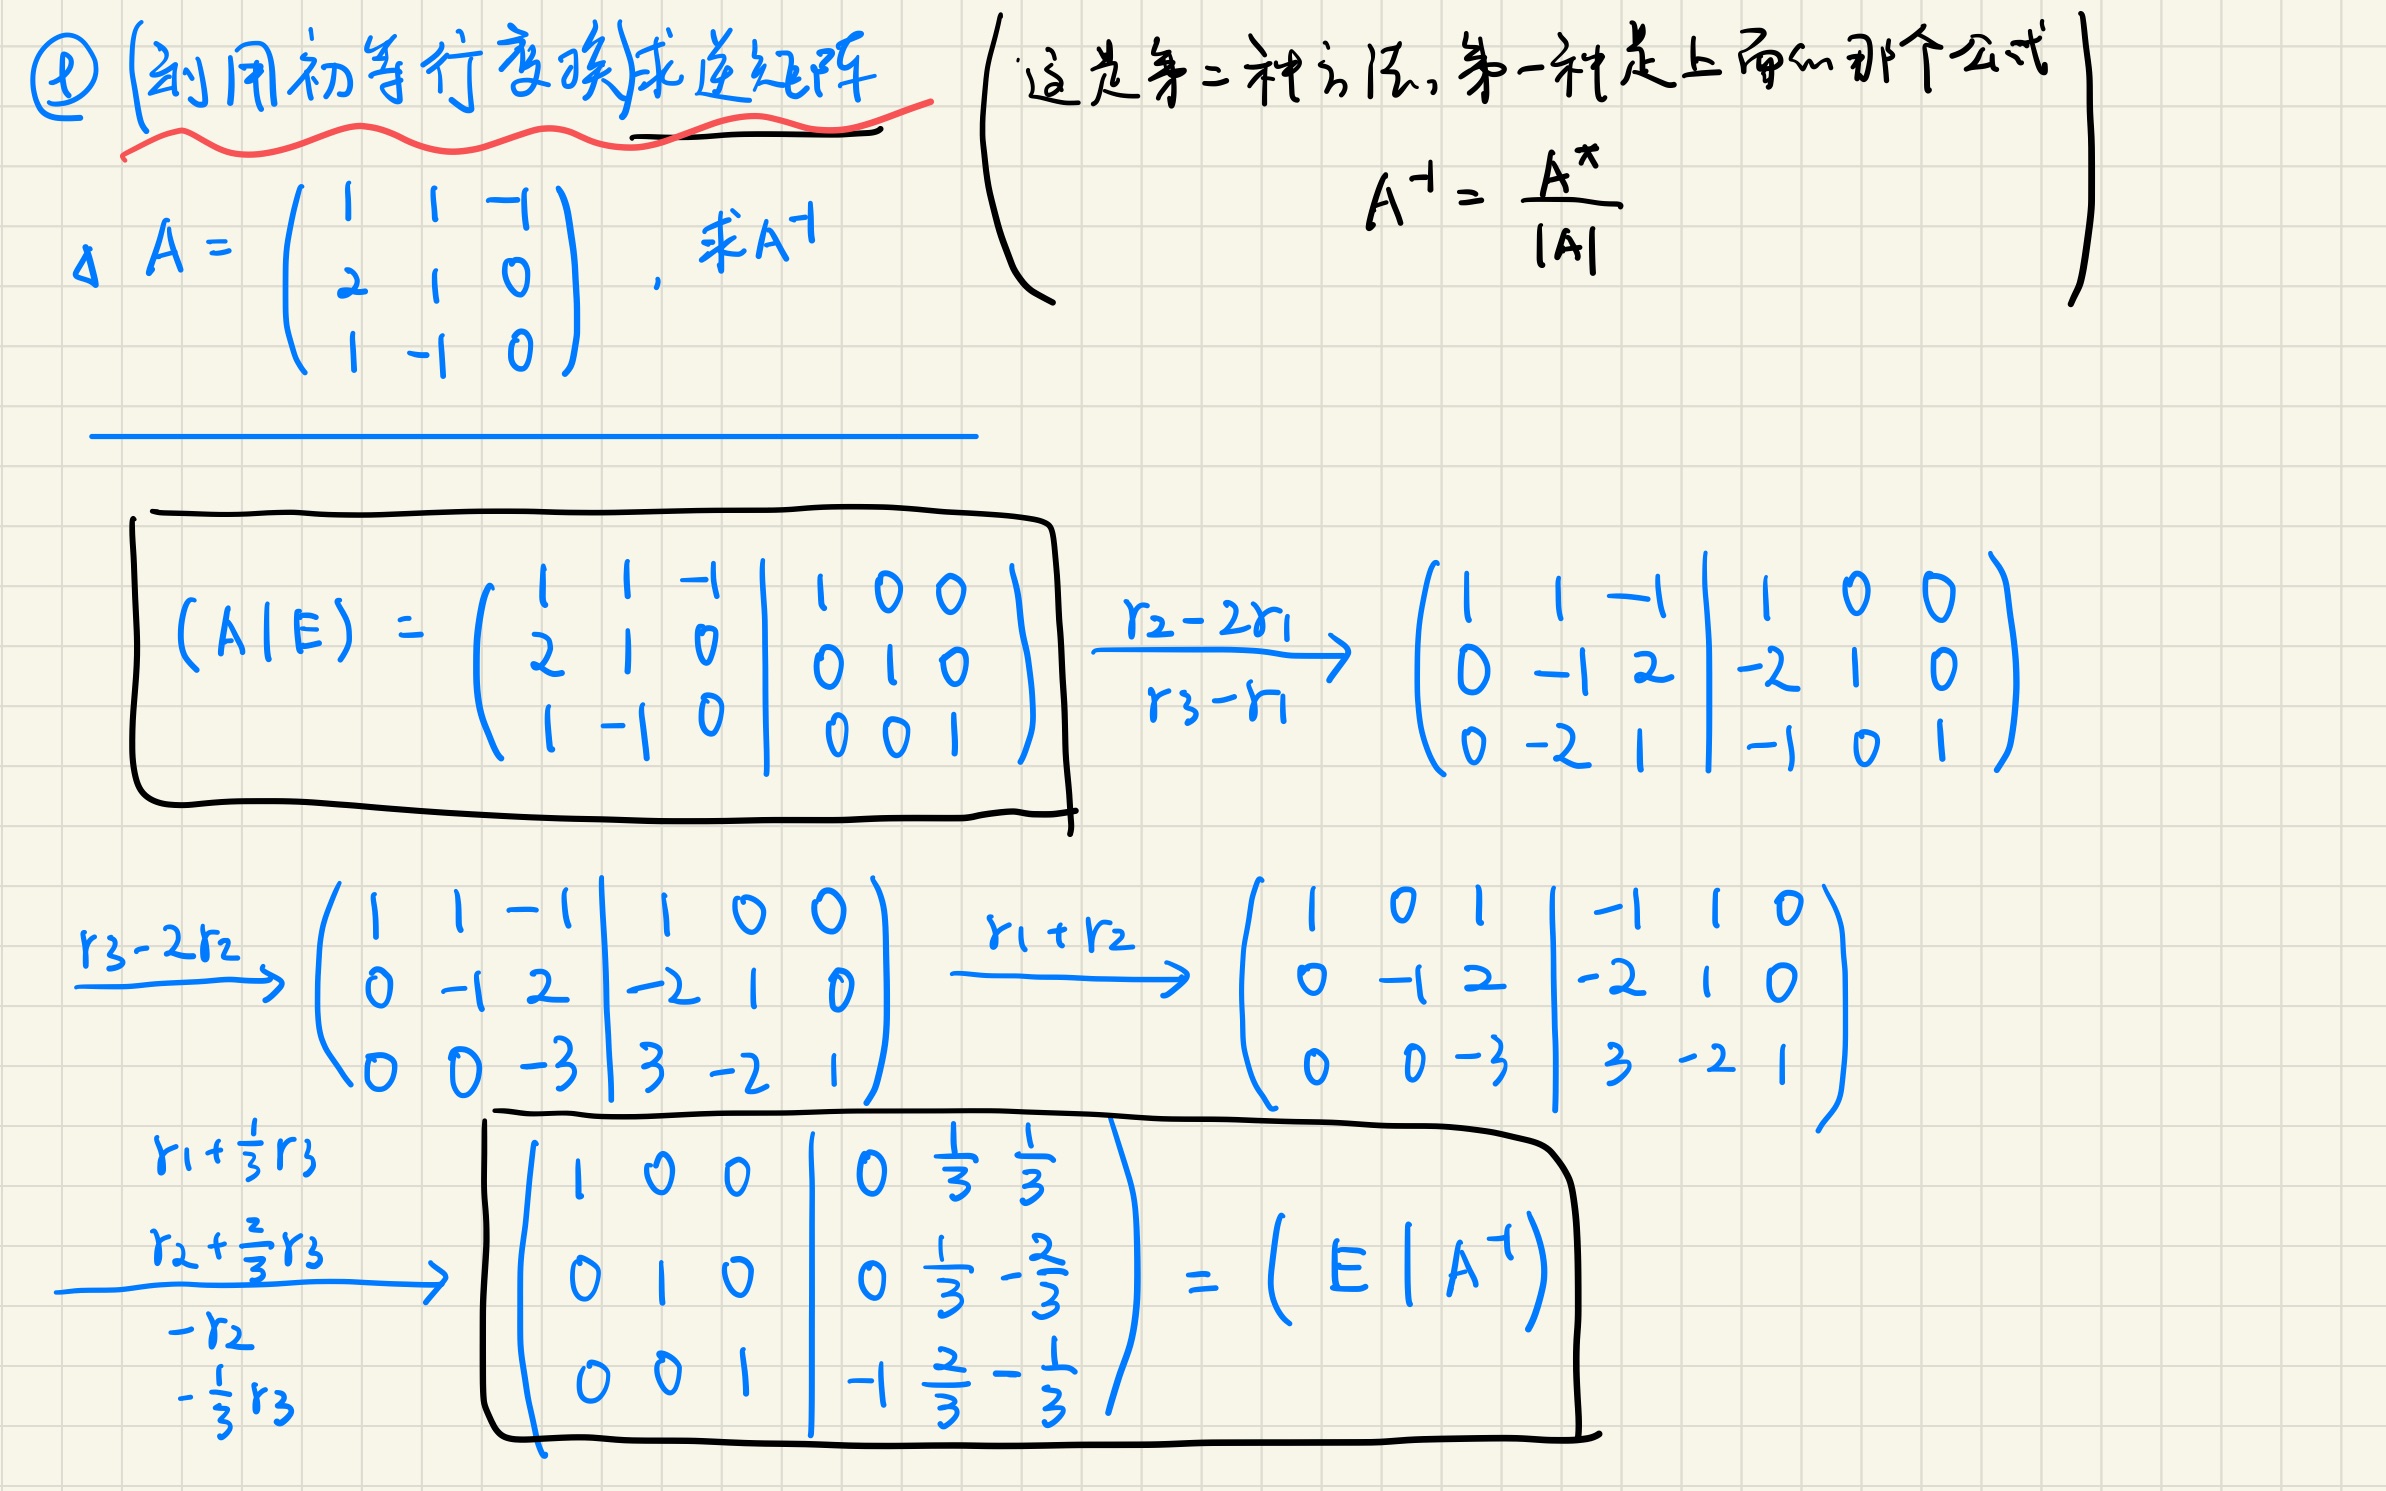 ② (利用初等行变换)求逆矩阵
(这是第二种方法,第一种是上面的那个公式
A⁻¹ = A* / |A| )
Δ A = ( 1 1 -1
2 1 0
1 -1 0 ), 求A⁻¹
(A|E) = ( 1 1 -1 | 1 0 0
2 1 0 | 0 1 0
1 -1 0 | 0 0 1 )
r2-2r1
r3-r1
→ ( 1 1 -1 | 1 0 0
0 -1 2 | -2 1 0
0 -2 1 | -1 0 1 )
r3-2r2
→ ( 1 1 -1 | 1 0 0
0 -1 2 | -2 1 0
0 0 -3 | 3 -2 1 )
r1+r2
→ ( 1 0 1 | -1 1 0
0 -1 2 | -2 1 0
0 0 -3 | 3 -2 1 )
r1+1/3 r3
r2+2/3 r3
-r2
-1/3 r3
→ ( 1 0 0 | 0 1/3 1/3
0 1 0 | 0 1/3 -2/3
0 0 1 | -1 2/3 -1/3 ) = (E|A⁻¹)